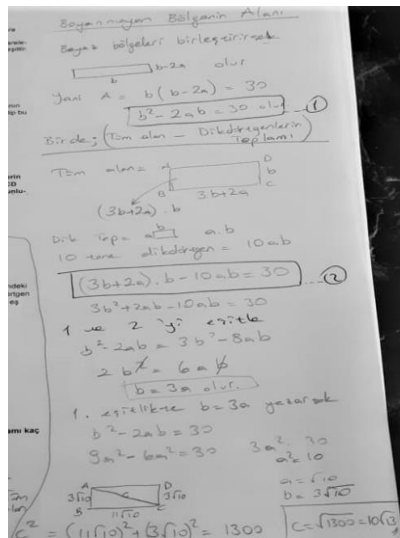 Boyanmayan Bölgenin Alanı
Beyaz bölgeleri birleştirirsek
b-2a olur
b
Yani A = b(b-2a) = 30
b² - 2ab = 30 olur 1
Birde; (Tüm alan - Dikdörtgenlerin Toplamı)
Tüm alan = A D
b
B 3b+2a C
(3b+2a).b
Dik Top = a b a.b
10 tane dikdörtgen = 10ab
(3b+2a).b - 10ab = 30 2
3b² + 2ab - 10ab = 30
1 ve 2 yi eşitle
b² - 2ab = 3b² - 8ab
2b² = 6ab
b = 3a olur.
1. eşitlikte b = 3a yazarsak
b² - 2ab = 30
9a² - 6a² = 30 3a² = 30
a² = 10
a = √10
b = 3√10
A D
3√10 c 3√10
B 11√10 C
c² = (11√10)² + (3√10)² = 1300
c = √1300 = 10√13
ndeki
eş
amı kaç